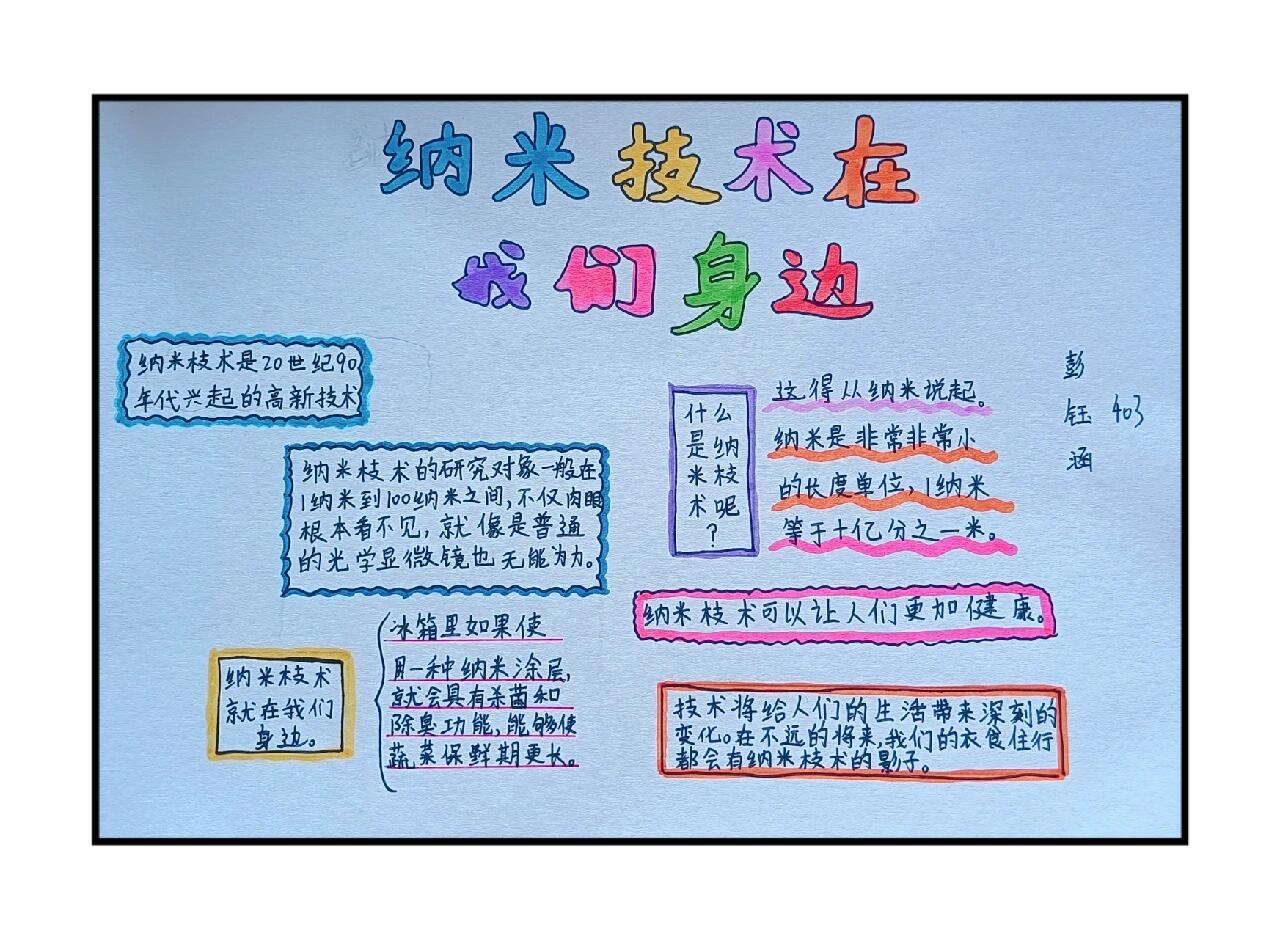 纳米技术在
我们身边
纳米技术是20世纪90
年代兴起的高新技术
纳米技术的研究对象一般在
1纳米到100纳米之间,不仅肉眼
根本看不见,就像是普通
的光学显微镜也无能为力。
什么
是纳
米技
术呢
?
这得从纳米说起。
纳米是非常非常小
的长度单位,1纳米
等于十亿分之一米。
彭
钰
涵
403
纳米技术可以让人们更加健康。
纳米技术
就在我们
身边。
冰箱里如果使
用一种纳米涂层,
就会具有杀菌和
除臭功能,能够使
蔬菜保鲜期更长。
技术将给人们的生活带来深刻的
变化。在不远的将来,我们的衣食住行
都会有纳米技术的影子。